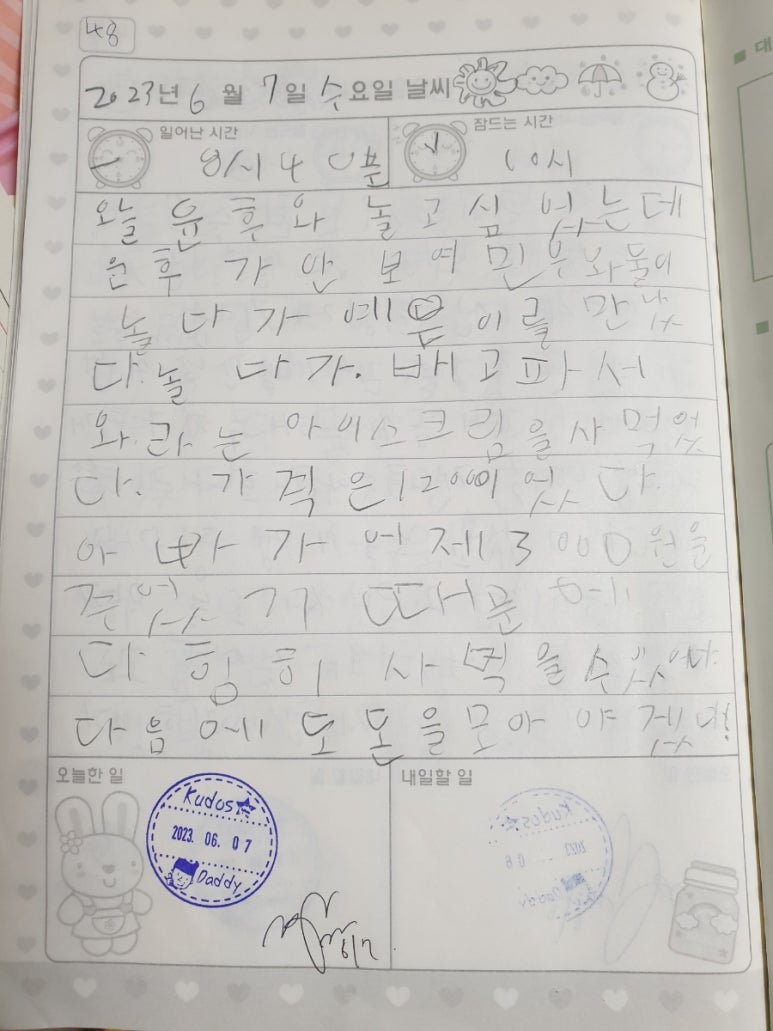 48
2023년 6월 7일 수요일 날씨
일어난 시간 8시 40분
잠드는 시간 10시
오늘 윤후와 놀고싶었는데
윤후가안보여민우와둘이
놀다가예쁜이를만났
다.놀다가.배고파서
와.라는아이스크림을사먹었
다. 가격은1200이었다.
아빠가어제13000원을
주었기때문에
다힝히사먹을수있었다
다음에도돈을모아야겠다!
오늘한 일
내일할 일
Kudos
2023. 06. 07
Daddy
Kudos
2023
Daddy
대